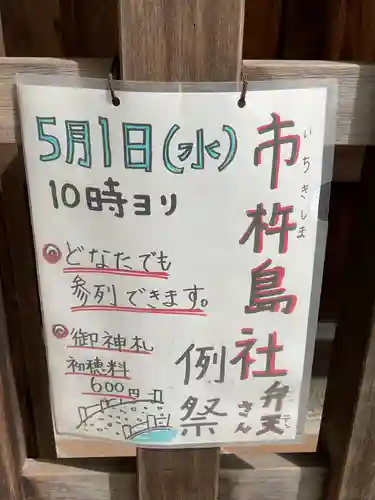 5月1日(水)
10時ヨリ
市杵島社
いちきしま
例祭
弁天さん
どなたでも
参列できます。
御神札
初穂料
600円